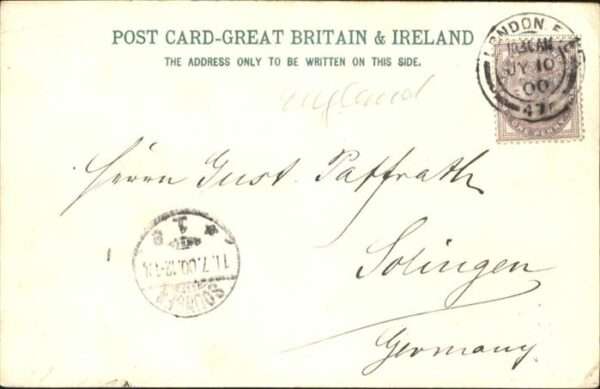 POST CARD-GREAT BRITAIN & IRELAND
THE ADDRESS ONLY TO BE WRITTEN ON THIS SIDE.
LONDON
JY 10
00
47
ONE PENNY
England
Herrn Gust. Paffrath
Solingen
Germany
1
11.7.00.12-1